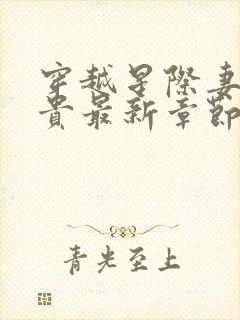 穿越星際妻
貴最新章節
青光至上